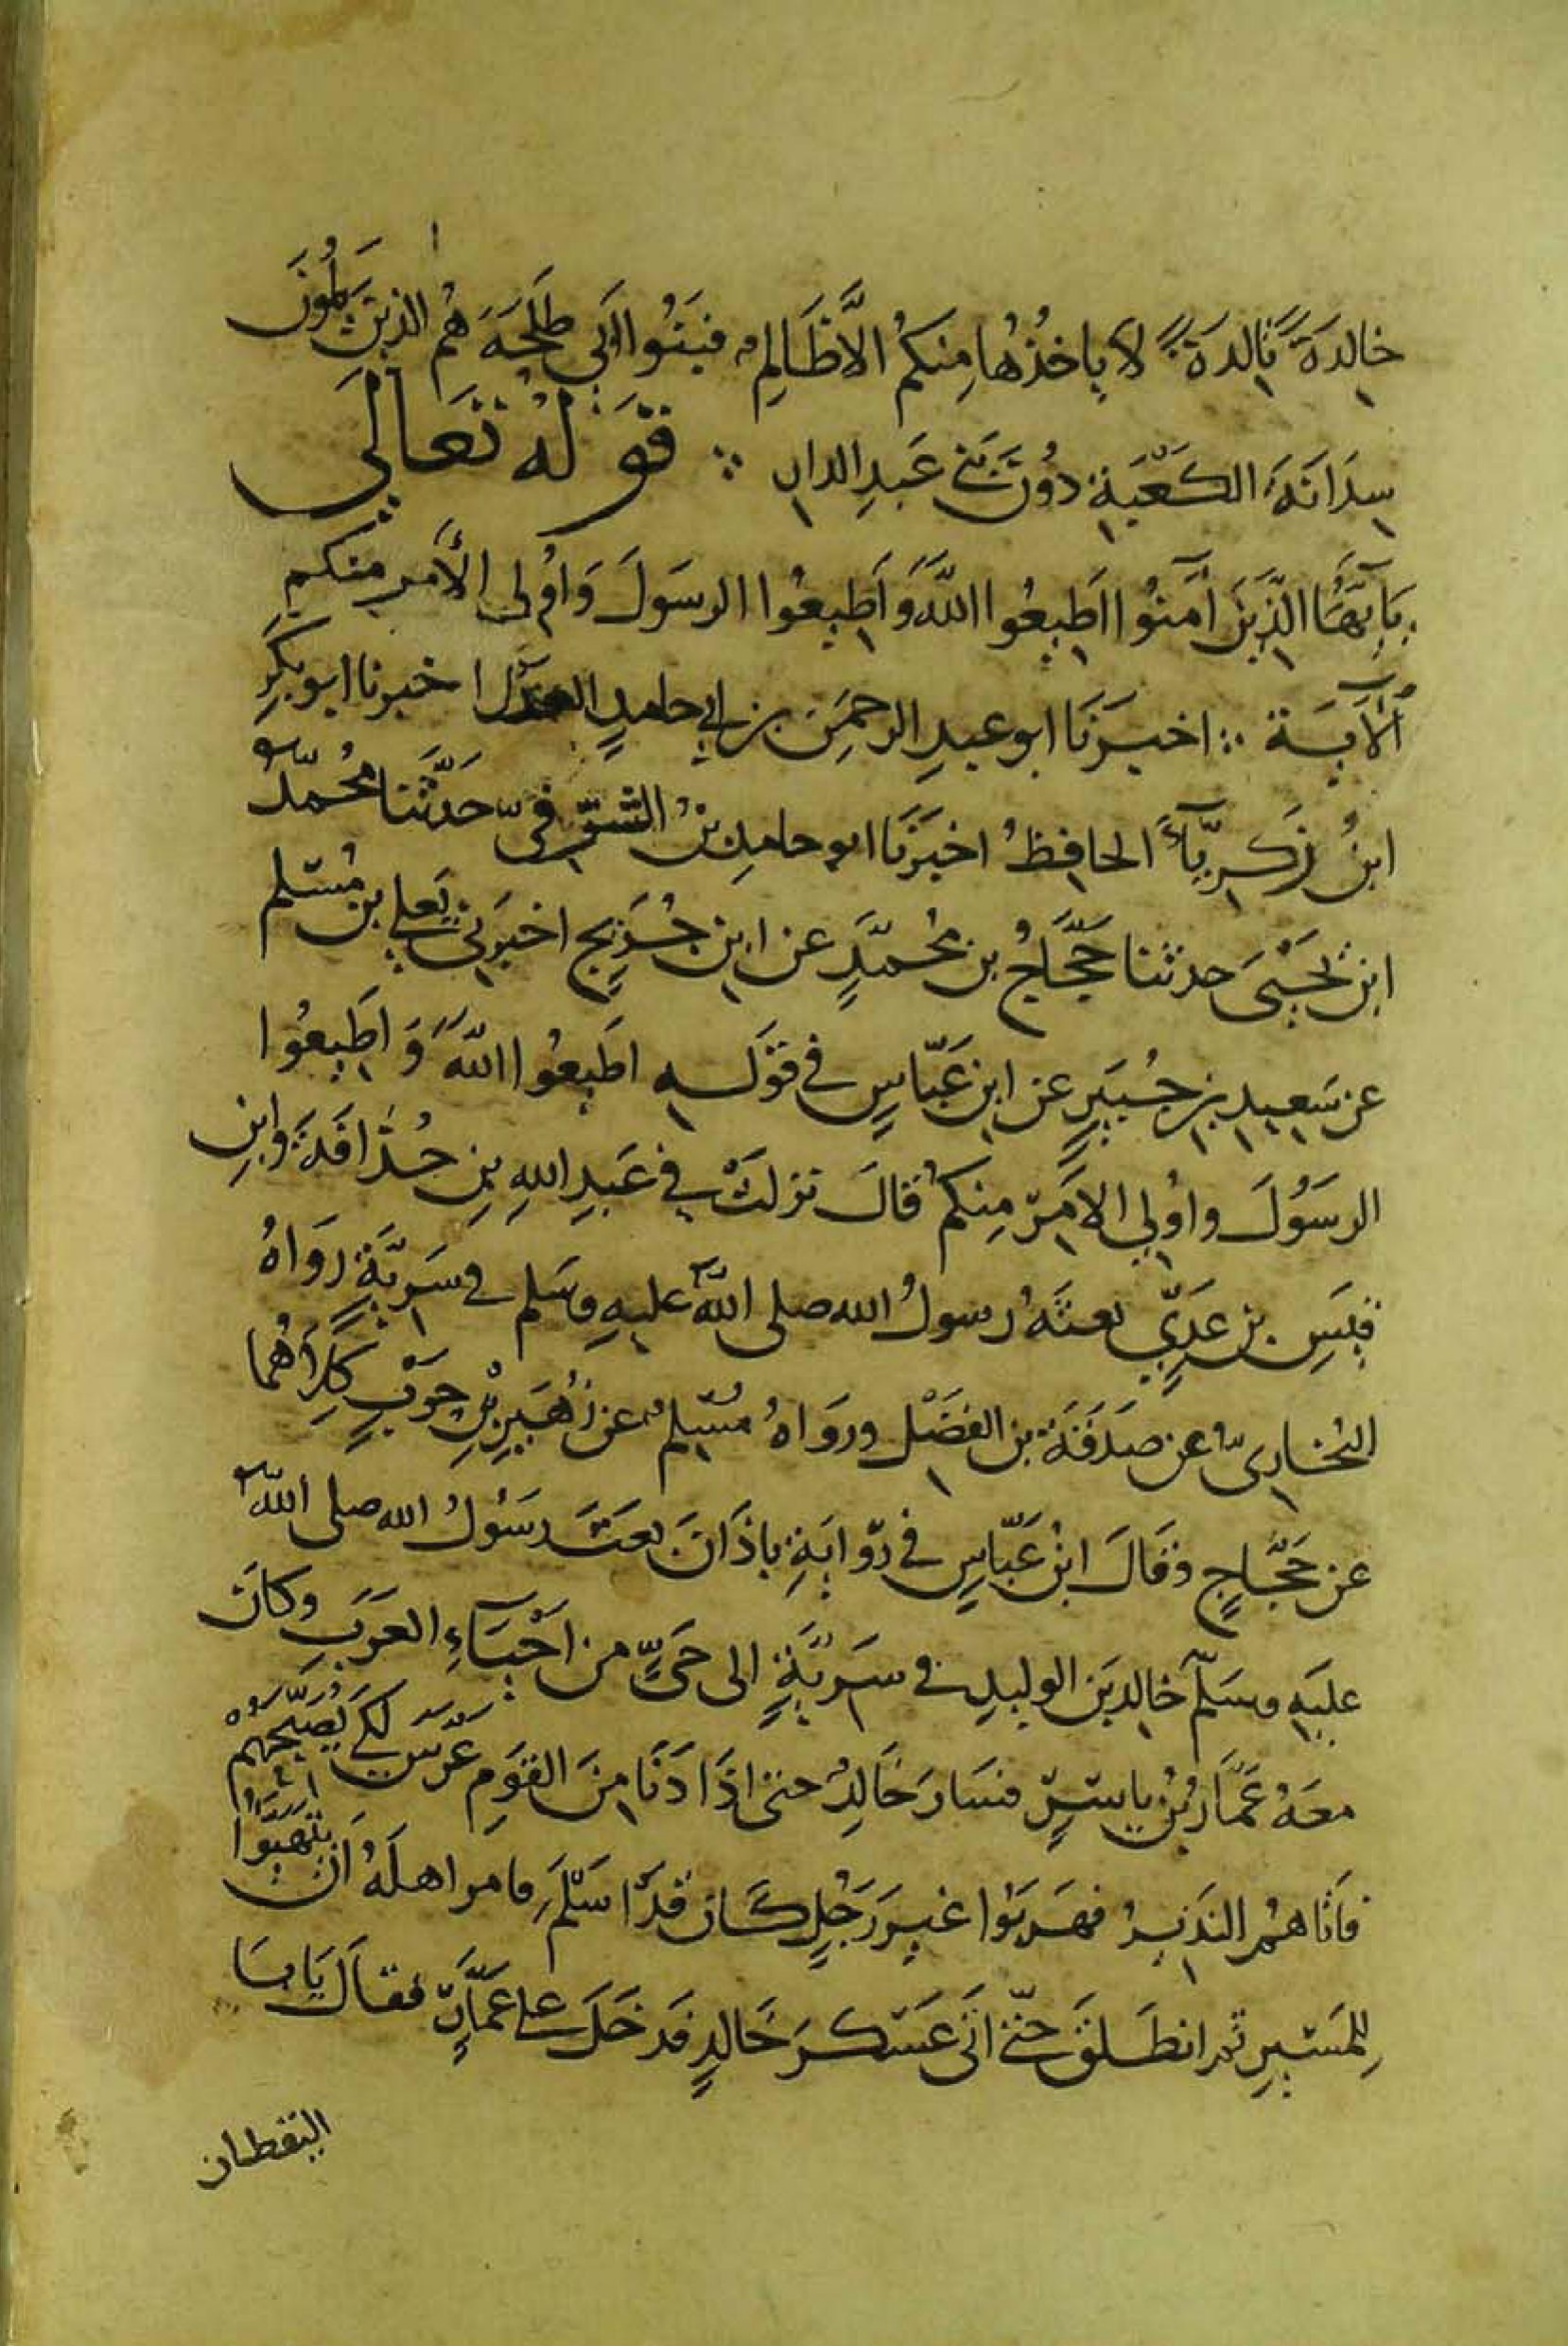 خالدةً تالدةً لا ياخذُها مِنكُم الّا ظَالِم فبنُوا ابي طلحَةَ هُم الذينَ يَلُونَ
سِدَانَةَ الكَعْبَةِ دُونَ بَني عَبدِ الدارِ ∴ قَوْلهُ تَعَالَى
يَآيُّهَا الَّذِينَ آمَنُوا اَطِيعُوا اللّهَ وَاَطِيعُوا الرسَولَ وَاوُلى الأَمرِ منكم
ٱلآيَة ∴ اخبَرَنَا ابو عبدِ الرحمَنِ بن ابي حامدٍ العدل اخبرنا ابو بكرِ
ابنُ زَكَرِيَّآءَ الحافِظُ اخبَرَنَا ابو حامِدِ بنُ الشَّرقىّ حَدَّثَنا مُحُمّدُ
ابن يَحيَىَ حدثنا حَجَّاجُ بن مُحمّدٍ عن ابن جُرَيجٍ اخبَرَنى يَعلى بن مُسْلم
عن سَعِيدِ بنِ جُبَيرٍ عن ابن عَبّاسٍ في قَولَهِ اطَيعُوا اللّهَ وَاطِيعُوا
الرسَوُلَ واوُلي الامَرِ مِنكمُ قالَ نزلَتْ في عَبدِ اللهِ بنِ حُذافَةَ وابنِ
قيَسِ بن عَدِيّ بعثَهُ رسولُ الله صلى اللّه عليهِ وسَلم في سَرِيَّةٍ رَوَاهُ
البُخارىّ عن صدَقَةَ بن الفَضْل ورَوَاهُ مُسْلِم عن زُهَيرِ بْنِ حَرْبٍ كِلَاهُما
عن حَجَّاجٍ وقَالَ ابنُ عَبّاسٍ في رّوايَةِ باذَانَ بعَثَ رسَوُلُ الله صلى اللّه
عليَهِ وسَلّم خالدَ بن الوليدِ في سَرِيَّةٍ الى حَىٍّ من احْيَآءِ العَرَبِ وكانَ
معَهُ عَمّارُ بنُ ياسِرٍ فسَارَ خَالِدُ حتى اذَا دَنَا مِنَ القَومِ عَرّسَ لكَي يُصَبّحَهُم
فَاتَاهُم النَذيرُ فهَربَوُا غيرَ رَجُلٍ كَانَ قدَ اسْلَمَ فامر اهلَهُ ان يتَهَيّئُوا
لِلمَسْيرِ ثم انطَلَقَ حتّى اتَى عَسْكرَ خَالدٍ فدَخَلَ على عَمَّارٍ فقالَ يَا ابا
اليقظان